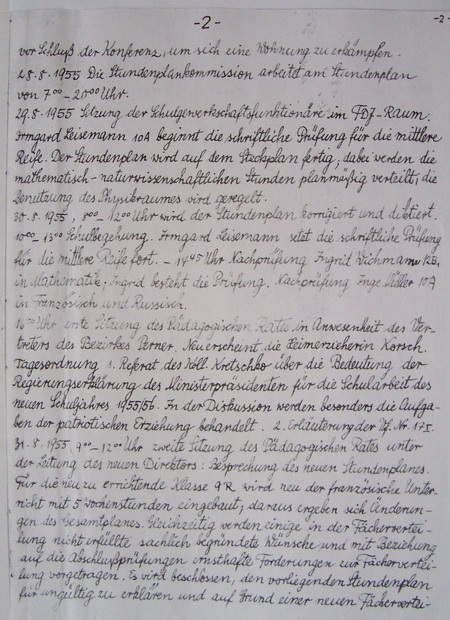 -2-
-2-
vor Schluß der Konferenz, um sich eine Wohnung zu erkämpfen.
28.8.1955 Die Stundenplankommission arbeitet am Stundenplan
von 7⁰⁰-20⁰⁰ Uhr.
29.8.1955 Sitzung der Schulgewerkschaftsfunktionäre im FDJ-Raum.
Irmgard Leisemann 10A beginnt die schriftliche Prüfung für die mittlere
Reife. Der Stundenplan wird auf dem Steckplan fertig, dabei werden die
mathematisch-naturwissenschaftlichen Stunden planmäßig verteilt, die
Benutzung des Physikraumes wird geregelt.
30.8.1955, 12⁰⁰ Uhr wird der Stundenplan korrigiert und diktiert.
10⁰⁰-13⁰⁰ Schulbegehung. Irmgard Leisemann setzt die schriftliche Prüfung
für die mittlere Reife fort. - 14⁴⁵ Uhr Nachprüfung Ingrid Wichmann 12B,
in Mathematik; Ingrid besteht die Prüfung. Nachprüfung Inge Müller 10A
in Französisch und Russisch.
Uhr erste Sitzung des Pädagogischen Rates in Anwesenheit des Ver-
treters des Bezirkes Perner. Neu erscheint die Heimerzieherin Korsch.
Tagesordnung 1. Referat des Koll. Kretschko über die Bedeutung der
Regierungserklärung des Ministerpräsidenten für die Schularbeit des
neuen Schuljahres 1955/56. In der Diskussion werden besonders die Aufga-
ben der patriotischen Erziehung behandelt. 2. Erläuterung der Vf. Nr. 175.
31.8.1955 9⁰⁰-12⁰⁰ Uhr zweite Sitzung des Pädagogischen Rates unter
der Leitung des neuen Direktors: Besprechung des neuen Stundenplanes.
Für die neu zu errichtende Klasse 9R wird neu der französische Unter-
richt mit 5 Wochenstunden eingebaut, daraus ergeben sich Änderun-
gen des Gesamtplanes. Gleichzeitig werden einige in der Fächervertei-
lung nicht erfüllte sachlich begründete Wünsche und mit Beziehung
auf die Abschlußprüfungen ernsthafte Forderungen zur Fächervertei-
lung vorgetragen. Es wird beschlossen, den vorliegenden Stundenplan
für ungültig zu erklären und auf Grund einer neuen Fächervertei-